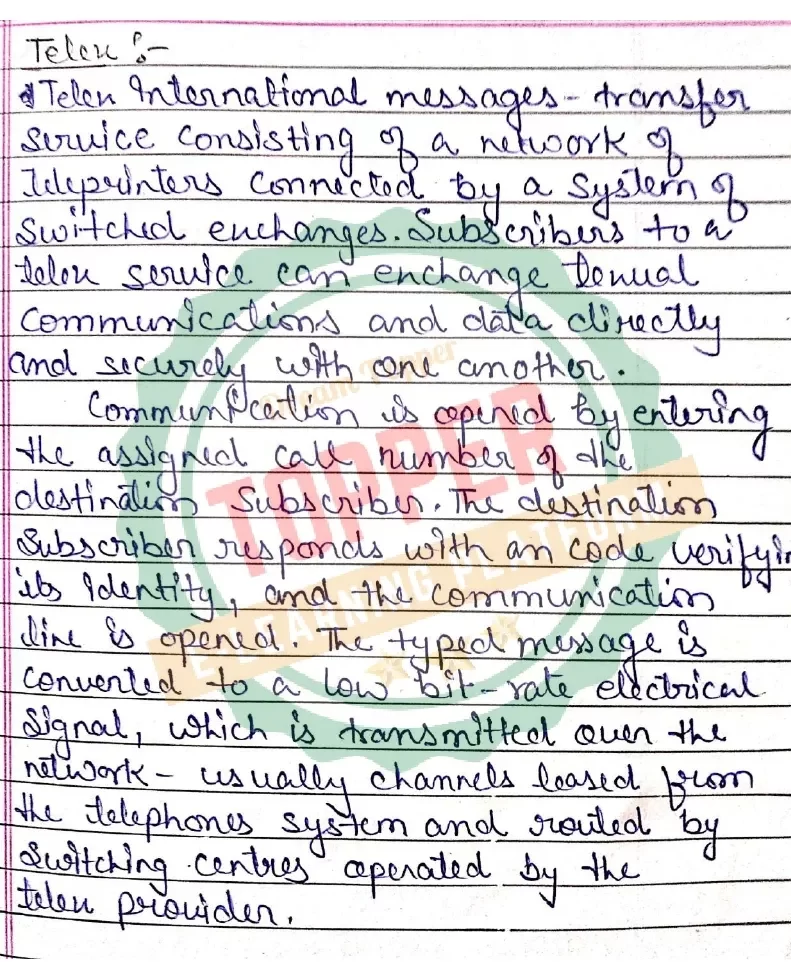 Telex :-
Telex International messages - transfer
service consisting of a network of
teleprinters connected by a system of
switched exchanges. Subscribers to a
telex service can exchange textual
communications and data directly
and securely with one another.
Communication is opened by entering
the assigned call number of the
destination subscriber. The destination
subscriber responds with an code verifyin
its identity, and the communication
line is opened. The typed message is
converted to a low bit-rate electrical
signal, which is transmitted over the
network - usually channels leased from
the telephones system and routed by
switching centres operated by the
telex provider.
Dream Topper
TOPPER
E-LEARNING PLATFORM